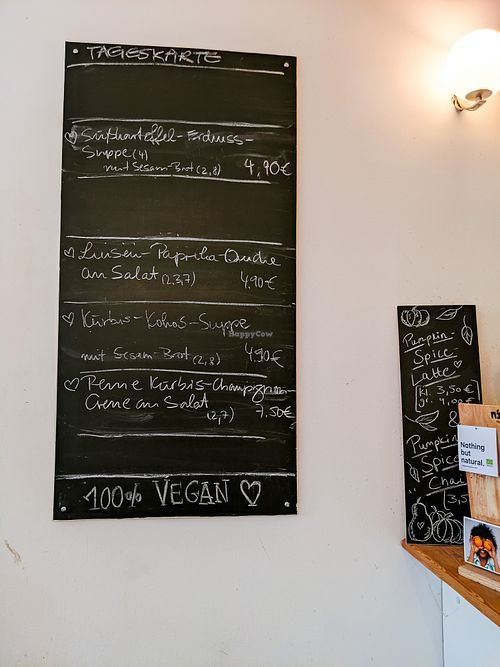 TAGESKARTE
Süßkartoffel-Erdnuss-
Suppe (4)
mit Sesam-Brot (2,8) 4,90€
Linsen-Paprika-Quiche
an Salat (2,3,7) 4,90€
Kürbis-Kokos-Suppe
HappyCow
mit Sesam-Brot (2,8) 4,90€
Penne Kürbis-Champignon-
Creme an Salat
(2,7) 7.50€
100% VEGAN
Pumpkin-
Spice
Latte
kl. 3,50€
gr. 4,00€
&
Pumpkin
Spice
Chai
3,5
Nothing
but
natural.